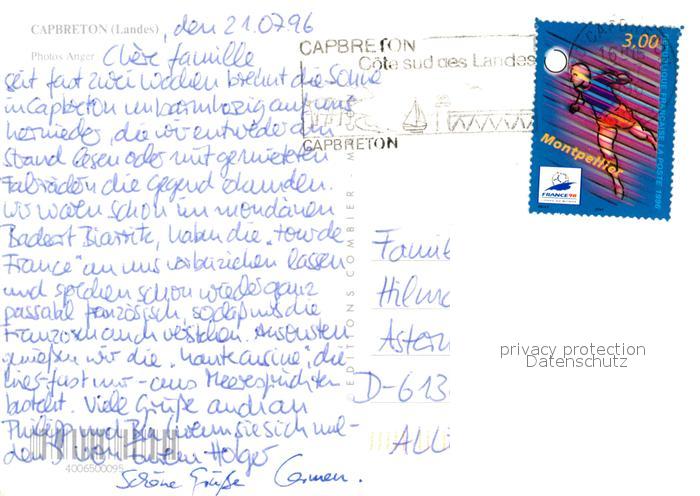 CAPBRETON (Landes), den 21.07.96
Photos Anger
Chère famille
seit fast zwei Wochen brennt die Sonne
in Capbreton unbarmherzig auf uns
hernieder, die wir entweder am
Strand lesen oder mit gemieteten
Fahrrädern die Gegend erkunden.
Wir waren schon im mondänen
Badeort Biarritz, haben die "Tour de
France" an uns vorbeiziehen lassen
und sprechen schon wieder ganz
passabel französisch, sodaß uns die
Franzosen auch verstehen. Ansonsten
genießen wir die "haute cuisine", die
hier fast nur aus Meeresfrüchten
besteht. Viele Grüße auch an
Philipp und wenn sie sich mel-
den Holger
Schöne Grüße Carmen.
4006500095
EDITIONS COMBIER
CAPBRETON
Côte sud des Landes
CAPBRETON
3,00
RÉPUBLIQUE FRANÇAISE LA POSTE 1996
Montpellier
FRANCE 98
Famil
Hilm
Astern
D-613
ALL
privacy protection
Datenschutz